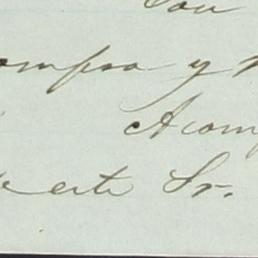 ompra y
Acom
este Sr.